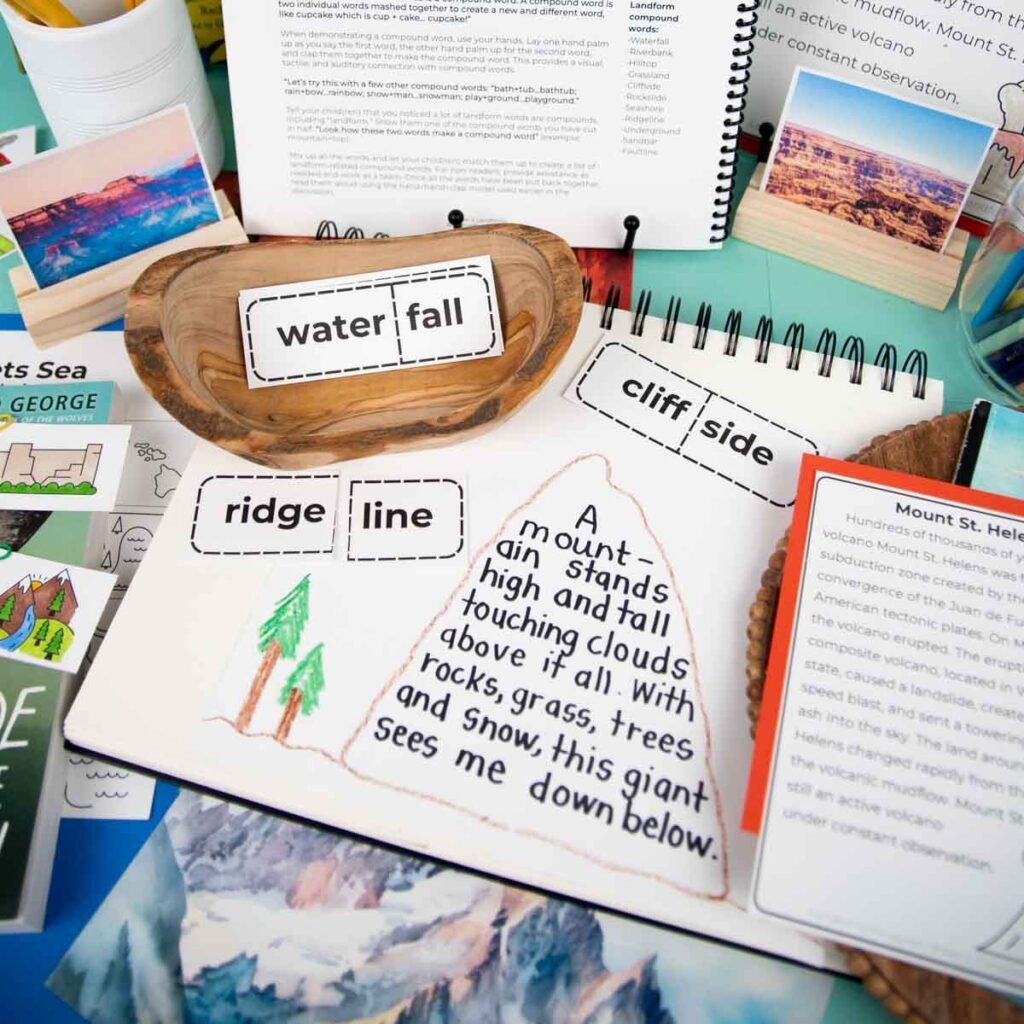 two individual words mashed together to create a new and different word,
like cupcake which is cup + cake... cupcake!"
When demonstrating a compound word, use your hands. Lay one hand palm
up as you say the first word, the other hand palm up for the second word,
and clap them together to make the compound word. This provides a visual,
tactile and auditory connection with compound words.
"Let's try this with a few other compound words: "bath+tub...bathtub;
rain+bow...rainbow; show+man...snowman; play+ground...playground."
Tell your child(ren) that you noticed a lot of landform words are compounds,
including "landform." Show them one of the compound words you have cut
in half. "Look how these two words make a compound word"
Mix up all the words and let your child(ren) match them up to create a list of
landform-related compound words. For non readers, provide assistance as
needed and work as a team. Once all the words have been put back together,
read them aloud using the hand+hand=clap model used earlier in the
discussion.
Landform
compound
words:
-Waterfall
-Riverbank
-Hilltop
-Grassland
-Cliffside
-Rockslide
-Seashore
-Ridgeline
-Underground
-Sandbar
-Faultline
mudflow. Mount St.
still an active volcano
under constant observation.
water fall
cliff side
ridge line
A
mount-
ain stands
high and tall
touching clouds
above it all. With
rocks, grass, trees
and snow, this giant
sees me down below.
ets Sea
GEORGE
OF THE WOLVES
Mount St. Hele
Hundreds of thousands of y
volcano Mount St. Helens was
subduction zone created by the
convergence of the Juan de Fu
American tectonic plates. On M
the volcano erupted. The erupti
composite volcano, located in W
state, caused a landslide, create
speed blast, and sent a towering
ash into the sky. The land around
Helens changed rapidly from the
the volcanic mudflow. Mount St.
still an active volcano
under constant observation.